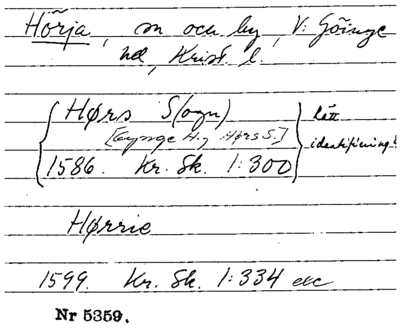 Hörja, sn och by, V: Göinge
hd, Krist. l.
Hørs S(ogn) rätt
[Gynge H., Hørs S.] identifiering?
1586. Kr. Sk. 1:300
Hørrie
1599. Kr. Sk. 1:334 etc
Nr 5359.